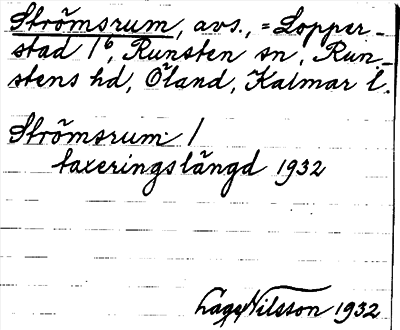 Strömsrum, avs., = Lopper-
stad 1⁶, Runsten sn, Run-
stens hd, Öland, Kalmar l.
Strömsrum /
taxeringslängd 1932
Lage Nilsson 1932